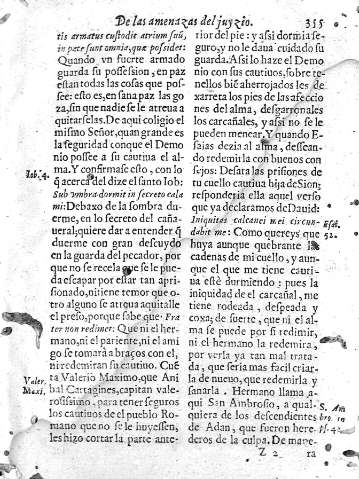 De las amenazas del juyzio. 355
tis armatus custodit atrium suũ,
in pace sunt omnia, quæ possidet:
Quando vn fuerte armado
guarda su possession, en paz
estan todas las cosas que pos-
see: esto es, en sana paz las go
za, sin que nadie se le atreua a
quitarselas. De aqui colegio el
mismo Señor, quan grande es
la seguridad conque el Demo
nio possee a su cautiua el al-
ma. Y confirmase esto, con lo
q̃ acerca del dize el santo Iob:
Iob. 4.
Sub vmbra dormit in secreto cala
mi: Debaxo de la sombra du-
erme, en lo secreto del caña-
ueral; quiere dar a entender q̃
duerme con gran descuydo
en la guarda del peccador, por
que no se recela que se le pue-
da escapar por estar tan apri-
sionado, ni tiene temor que o-
tro alguno se atreua a quitalle
el preso, porque sabe que Fra-
ter non redimet: Que ni el her-
mano, ni el pariente, ni el ami
go se tomarà a braços con el,
ni redemiran su cautiuo. Cue
Valer.
Maxi.
ta Valerio Maximo, que Ani
bal Cartagines, capitan valer-
osissimo, para tener seguros
los cautiuos del pueblo Ro-
mano que no se le huyessen,
les hizo cortar la parte ante-
rior del pie: y assi dormia se-
guro, y no le daua cuidado su
guarda. Assi lo haze el Demo
nio con sus cautiuos, sobre te-
nellos biẽ aherrojados les de-
xarreta los pies de las afeccio
nes del alma, desgarronales
los carcañales, y assi no se le
pueden menear. Y quando E-
saias dezia al alma, dessean-
do redemirla con buenos con
sejos: Desara las prisiones de
tu cuello cautiua hija de Sion;
responderia ella aquel verso
que ya declaramos de Dauid:
Iniquitas calcanei mei circun-
dabit me: Como quereys que
Esai.
52.
huya aunque quebrante las
cadenas de mi cuello, y aun-
que el que me tiene cauti-
ua estè durmiendo; pues la
iniquidad de el carcañal, me
tiene rodeada, despeada y
coxa; de suerte, que ni el al-
ma se puede por si redimir,
ni el hermano la redemira,
por verla ya tan mal trata-
da, que seria mas facil criar-
la de nuevo, que redemirla y
sanarla. Hermano llama a-
qui San Ambrosio, a qual-
quiera de los descendientes
de Adan, que fueron here-
deros de la culpa. De mane-
S. Am
bro. in
Z 2 ra